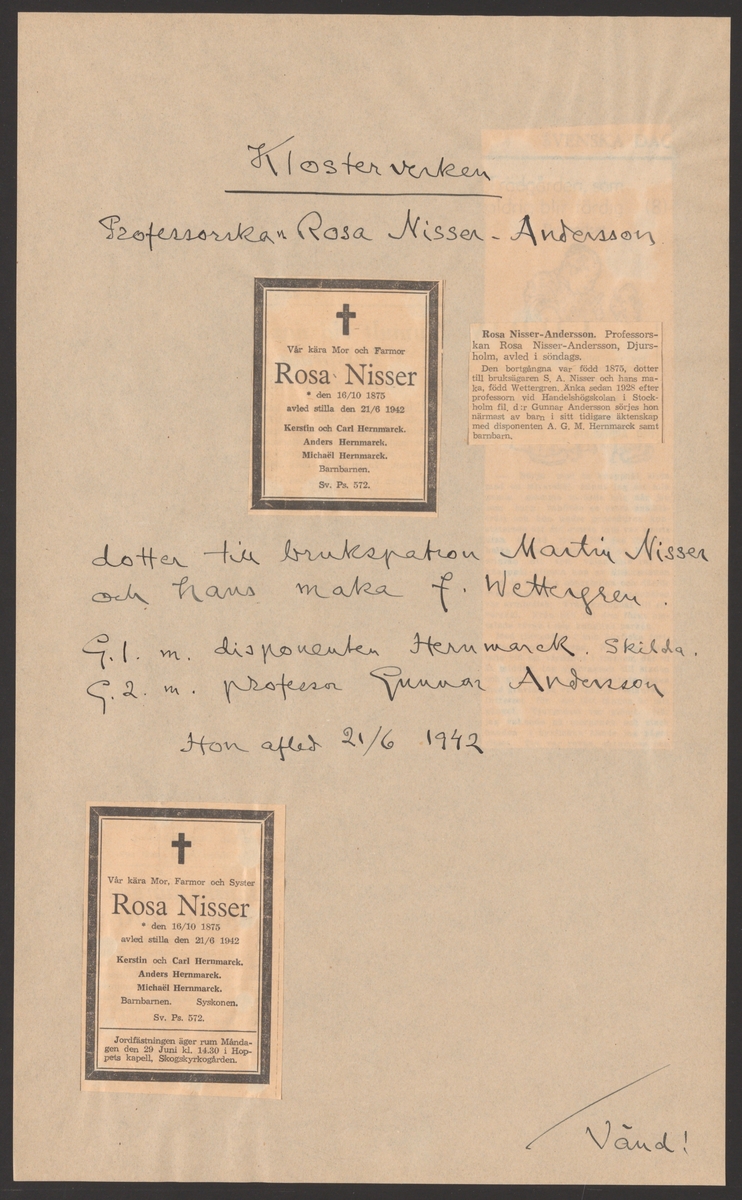 Klosterverken
Professorskan Rosa Nisser-Andersson
Vår kära Mor och Farmor
Rosa Nisser
* den 16/10 1875
avled stilla den 21/6 1942
Kerstin och Carl Hernmarck.
Anders Hernmarck.
Michaël Hernmarck.
Barnbarnen.
Sv. Ps. 572.
Rosa Nisser-Andersson. Professors-
kan Rosa Nisser-Andersson, Djurs-
holm, avled i söndags.
Den bortgångna var född 1875, dotter
till bruksägaren S. A. Nisser och hans ma-
ka, född Wettergren. Änka sedan 1928 efter
professorn vid Handelshögskolan i Stock-
holm fil. d:r Gunnar Andersson sörjes hon
närmast av barn i sitt tidigare äktenskap
med disponenten A. G. M. Hernmarck samt
barnbarn.
dotter till brukspatron Martin Nisser
och hans maka f. Wettergren.
G. 1. m. disponenten Hernmarck. Skilda.
G. 2. m. professor Gunnar Andersson
Hon afled 21/6 1942
Vår kära Mor, Farmor och Syster
Rosa Nisser
* den 16/10 1875
avled stilla den 21/6 1942
Kerstin och Carl Hernmarck.
Anders Hernmarck.
Michaël Hernmarck.
Barnbarnen. Syskonen.
Sv. Ps. 572.
Jordfästningen äger rum Månda-
gen den 29 Juni kl. 14.30 i Hop-
pets kapell, Skogskyrkogården.
Vänd!